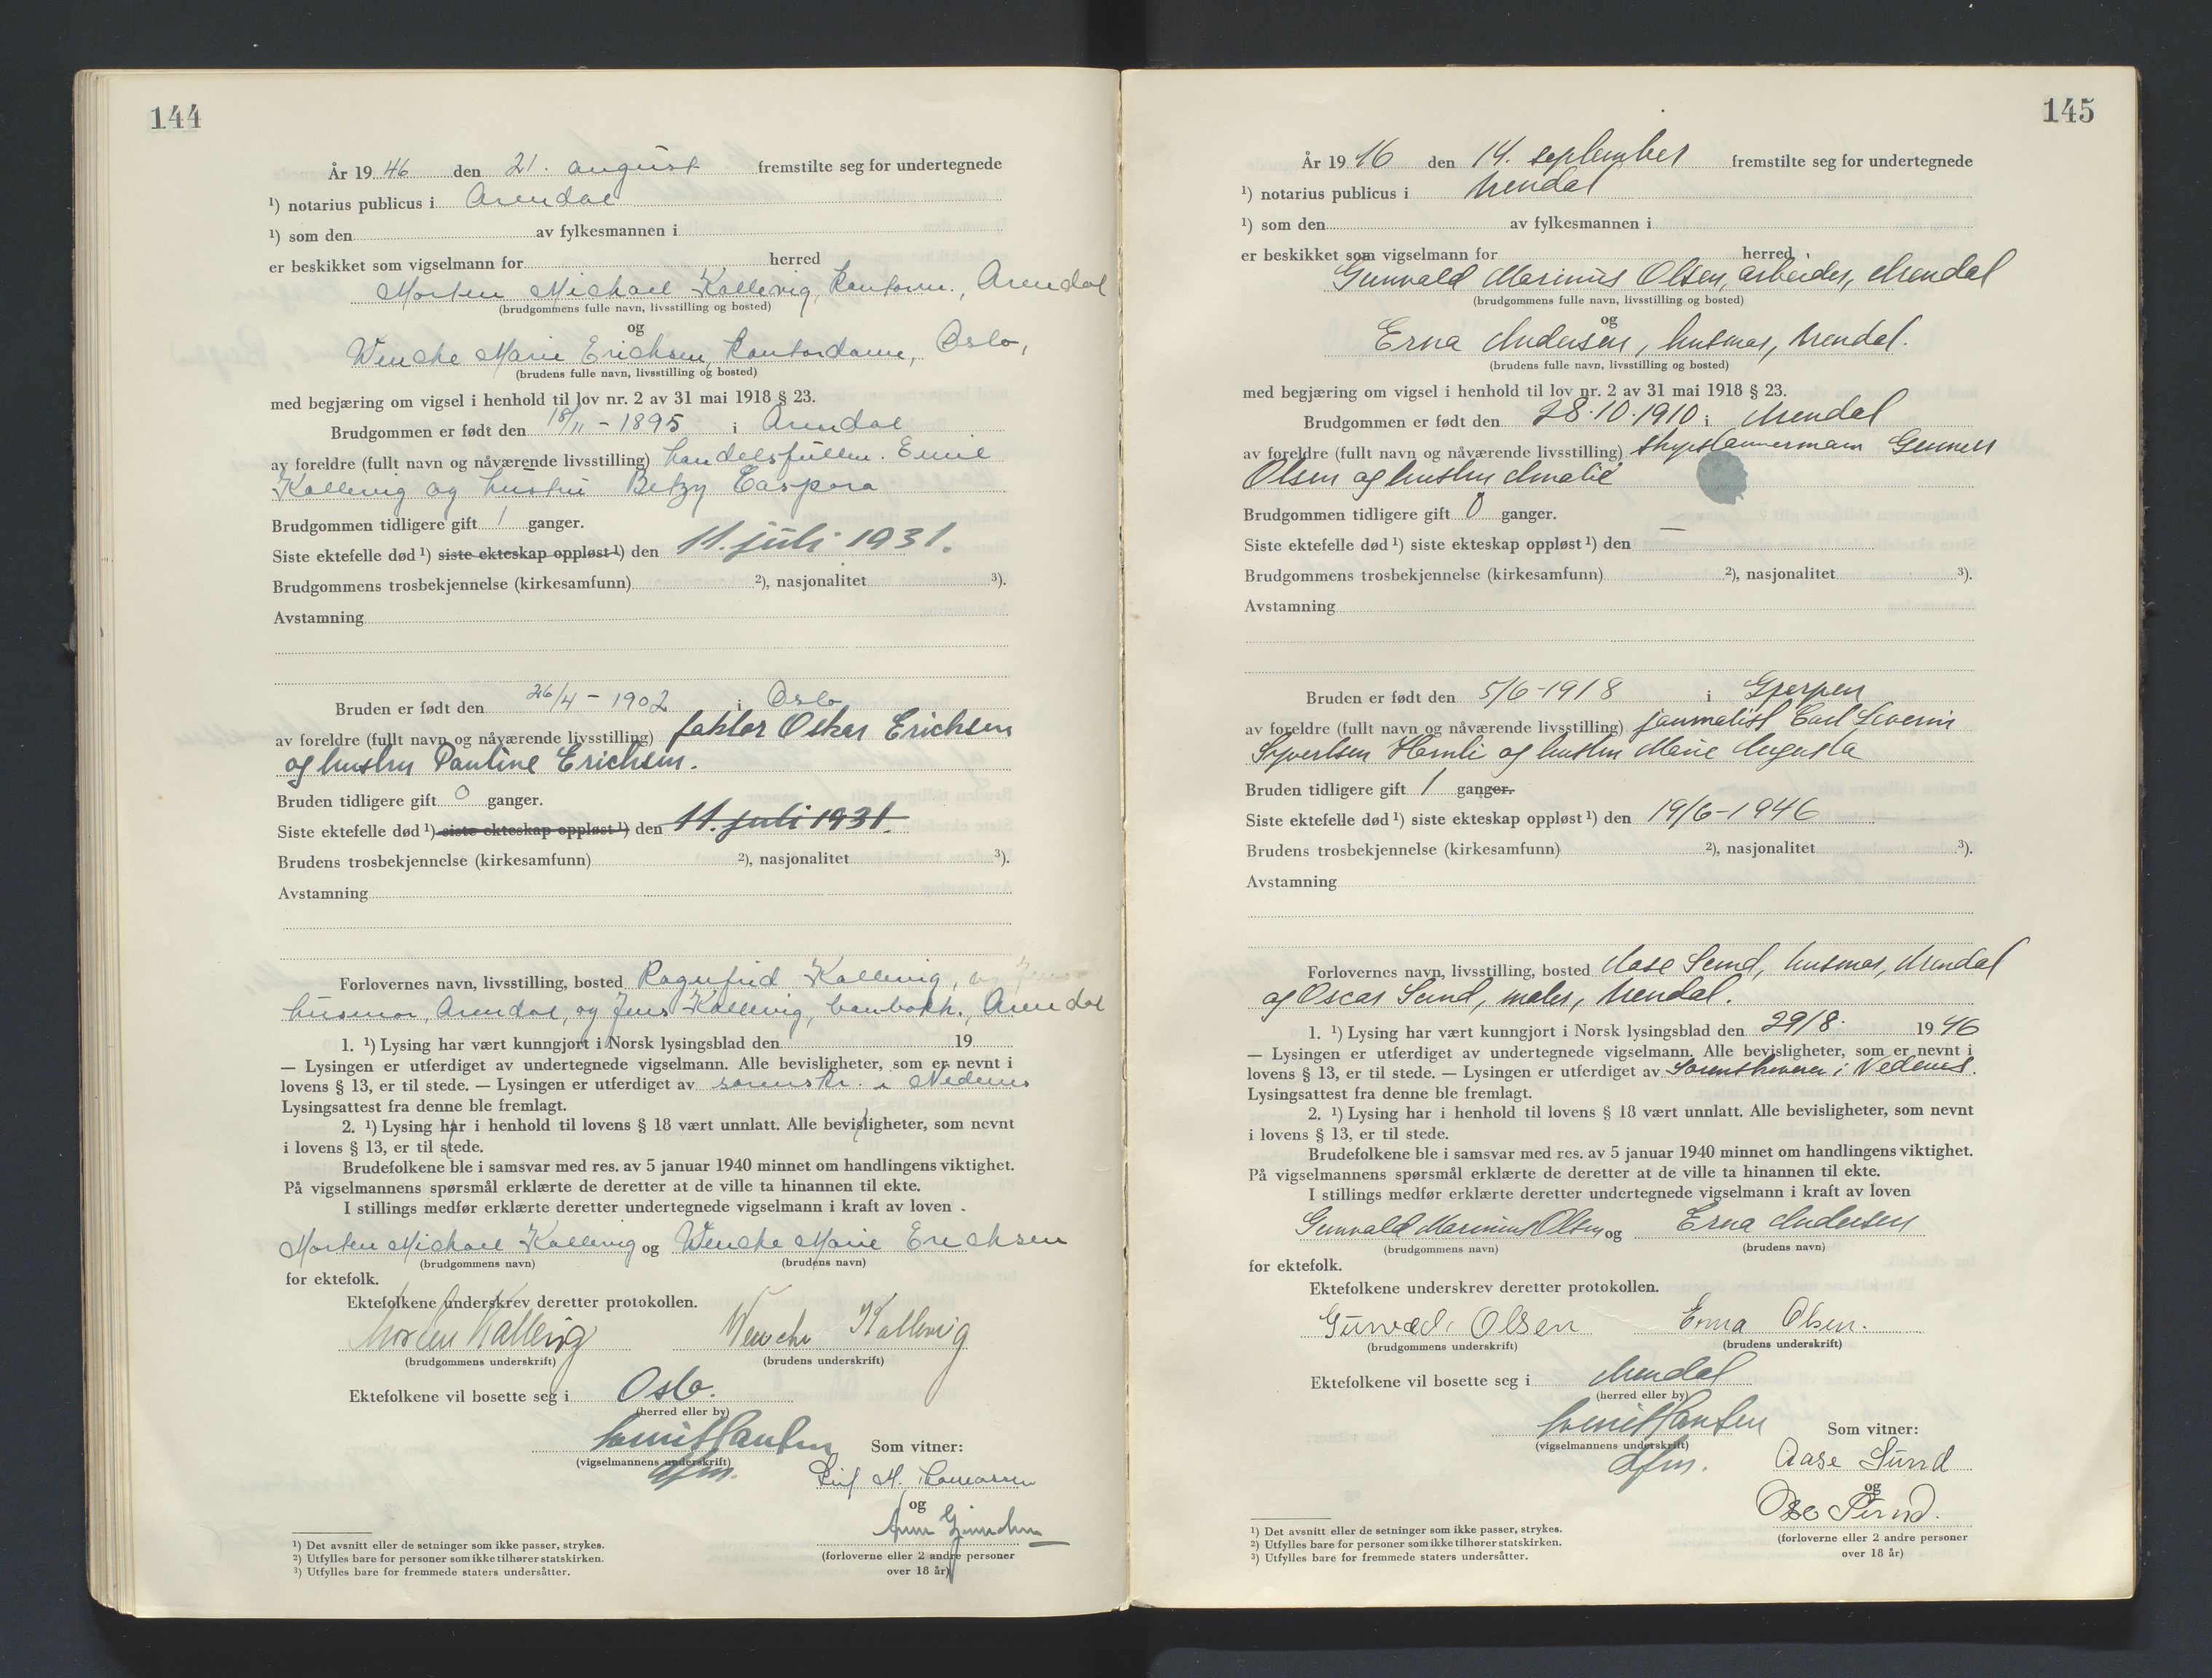 144
År 19 46 den 21. august fremstilte seg for undertegnede
¹) notarius publicus i Arendal
¹) som den av fylkesmannen i
er beskikket som vigselmann for herred
Morten Michael Kallevig, kontorm., Arendal
(brudgommens fulle navn, livsstilling og bosted)
og
Wenche Marie Erichsen, kontordame, Oslo,
(brudens fulle navn, livsstilling og bosted)
med begjæring om vigsel i henhold til lov nr. 2 av 31 mai 1918 § 23.
Brudgommen er født den 18/11 - 1895 i Arendal
av foreldre (fullt navn og nåværende livsstilling) handelsfullm. Emil
Kallevig og hustru Betzy Caspara
Brudgommen tidligere gift 1 ganger.
Siste ektefelle død ¹) siste ekteskap oppløst ¹) den 11. juli 1931.
Brudgommens trosbekjennelse (kirkesamfunn) ²), nasjonalitet ³).
Avstamning
Bruden er født den 26/4 - 1902 i Oslo
av foreldre (fullt navn og nåværende livsstilling) faktor Oskar Erichsen
og hustru Pauline Erichsen.
Bruden tidligere gift 0 ganger.
Siste ektefelle død ¹) siste ekteskap oppløst ¹) den 11. juli 1931.
Brudens trosbekjennelse (kirkesamfunn) ²), nasjonalitet ³).
Avstamning
Forlovernes navn, livsstilling, bosted Ragnfrid Kallevig,
husmor, Arendal, og Jens Kallevig, Arendal
1. ¹) Lysing har vært kunngjort i Norsk lysingsblad den 19
— Lysingen er utferdiget av undertegnede vigselmann. Alle bevisligheter, som er nevnt i
lovens § 13, er til stede. — Lysingen er utferdiget av sorenskr. i Nedenes
Lysingsattest fra denne ble fremlagt.
2. ¹) Lysing har i henhold til lovens § 18 vært unnlatt. Alle bevisligheter, som nevnt
i lovens § 13, er til stede.
Brudefolkene ble i samsvar med res. av 5 januar 1940 minnet om handlingens viktighet.
På vigselmannens spørsmål erklærte de deretter at de ville ta hinannen til ekte.
I stillings medfør erklærte deretter undertegnede vigselmann i kraft av loven .
Morten Michael Kallevig og Wenche Marie Erichsen
(brudgommens navn) (brudens navn)
for ektefolk.
Ektefolkene underskrev deretter protokollen.
Morten Kallevig Wenche Kallevig
(brudgommens underskrift) (brudens underskrift)
Ektefolkene vil bosette seg i Oslo.
(herred eller by)
Som vitner:
(vigselmannens underskrift)
dfm.
og
(forloverne eller 2 andre personer
over 18 år)
¹) Det avsnitt eller de setninger som ikke passer, strykes.
²) Utfylles bare for personer som ikke tilhører statskirken.
³) Utfylles bare for fremmede staters undersåtter.
145
År 19 46 den 14. september fremstilte seg for undertegnede
¹) notarius publicus i Arendal
¹) som den av fylkesmannen i
er beskikket som vigselmann for herred
Gunvald Marinius Olsen, arbeider, Arendal
(brudgommens fulle navn, livsstilling og bosted)
og
Erna Andersen, husmor, Arendal.
(brudens fulle navn, livsstilling og bosted)
med begjæring om vigsel i henhold til lov nr. 2 av 31 mai 1918 § 23.
Brudgommen er født den 28.10.1910 i Arendal
av foreldre (fullt navn og nåværende livsstilling) skipstømmermann
Olsen og hustru Amalie
Brudgommen tidligere gift 0 ganger.
Siste ektefelle død ¹) siste ekteskap oppløst ¹) den —
Brudgommens trosbekjennelse (kirkesamfunn) ²), nasjonalitet ³).
Avstamning
Bruden er født den 5/6 - 1918 i Gjerpen
av foreldre (fullt navn og nåværende livsstilling) journalist Carl Severin
Syvertsen Hamli og hustru Marie Augusta
Bruden tidligere gift 1 ganger.
Siste ektefelle død ¹) siste ekteskap oppløst ¹) den 19/6 - 1946
Brudens trosbekjennelse (kirkesamfunn) ²), nasjonalitet ³).
Avstamning
Forlovernes navn, livsstilling, bosted Aase Sund, husmor, Arendal
og Oscar Sund, maler, Arendal.
1. ¹) Lysing har vært kunngjort i Norsk lysingsblad den 29/8. 19 46
— Lysingen er utferdiget av undertegnede vigselmann. Alle bevisligheter, som er nevnt i
lovens § 13, er til stede. — Lysingen er utferdiget av Sorenskriveren i Nedenes.
Lysingsattest fra denne ble fremlagt.
2. ¹) Lysing har i henhold til lovens § 18 vært unnlatt. Alle bevisligheter, som nevnt
i lovens § 13, er til stede.
Brudefolkene ble i samsvar med res. av 5 januar 1940 minnet om handlingens viktighet.
På vigselmannens spørsmål erklærte de deretter at de ville ta hinannen til ekte.
I stillings medfør erklærte deretter undertegnede vigselmann i kraft av loven
Gunvald Marinius Olsen og Erna Andersen
(brudgommens navn) (brudens navn)
for ektefolk.
Ektefolkene underskrev deretter protokollen.
Gunvald Olsen Erna Olsen.
(brudgommens underskrift) (brudens underskrift)
Ektefolkene vil bosette seg i Arendal
(herred eller by)
Som vitner:
(vigselmannens underskrift)
dfm.
Aase Sund
og
Sund.
(forloverne eller 2 andre personer
over 18 år)
¹) Det avsnitt eller de setninger som ikke passer, strykes.
²) Utfylles bare for personer som ikke tilhører statskirken.
³) Utfylles bare for fremmede staters undersåtter.